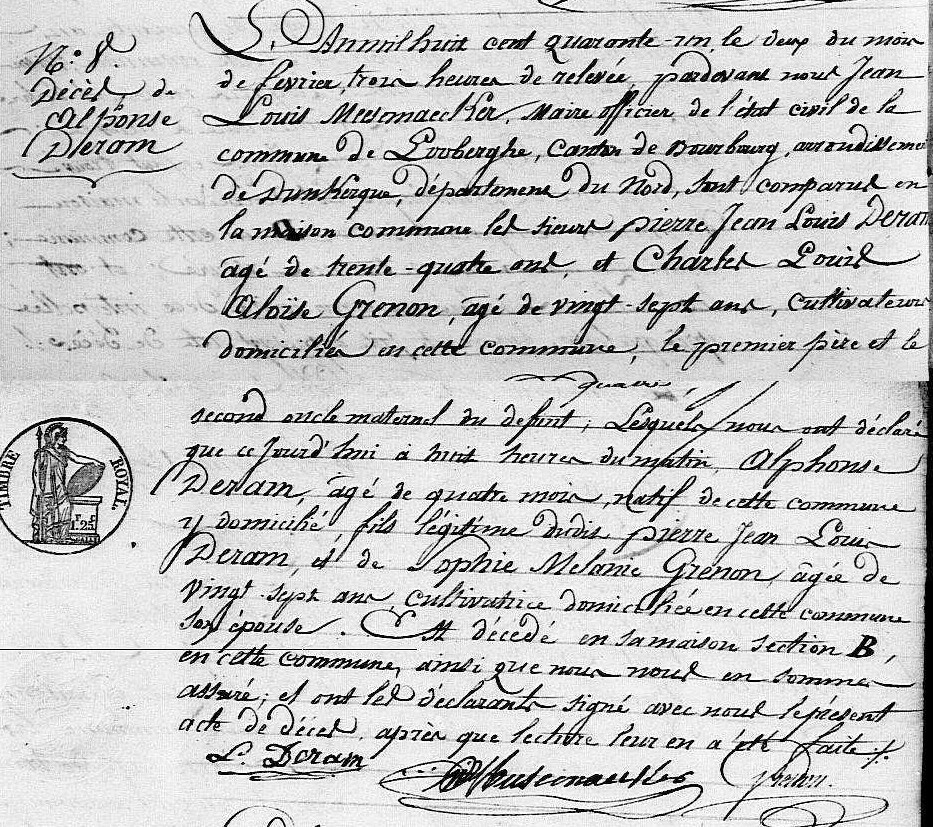 N.º 8
Décès de
Alphonse
Deram
L'An mil huit cent quarante-un, le deux du mois
de février, trois heures de relevée, pardevant nous Jean
Louis Meesmaecker, Maire officier de l'état civil de la
commune de Looberghe, Canton de Bourbourg, arrondissement
de Dunkerque, département du Nord, sont comparus en
la maison commune les sieurs Pierre Jean Louis Deram
âgé de trente-quatre ans, et Charles Louis
Aloïse Grenon, âgé de vingt-sept ans, cultivateurs
domiciliés en cette commune, le premier père et le
second oncle maternel du defunt; Lesquels nous ont déclaré
que ce Jourd'hui à huit heures du matin, Alphonse
Deram, âgé de quatre mois, natif de cette commune
y domicilié, fils légitime dudit Pierre Jean Louis
Deram, et de Sophie Melanie Grenon, âgée de
vingt-sept ans, cultivatrice domiciliée en cette commune
son épouse. Est décédé en sa maison section B,
en cette commune, ainsi que nous nous en sommes
assuré; et ont les déclarants signé avec nous le présent
acte de décès, après que lecture leur en a été faite ./.
L. Deram
TIMBRE ROYAL.
1f. 25c